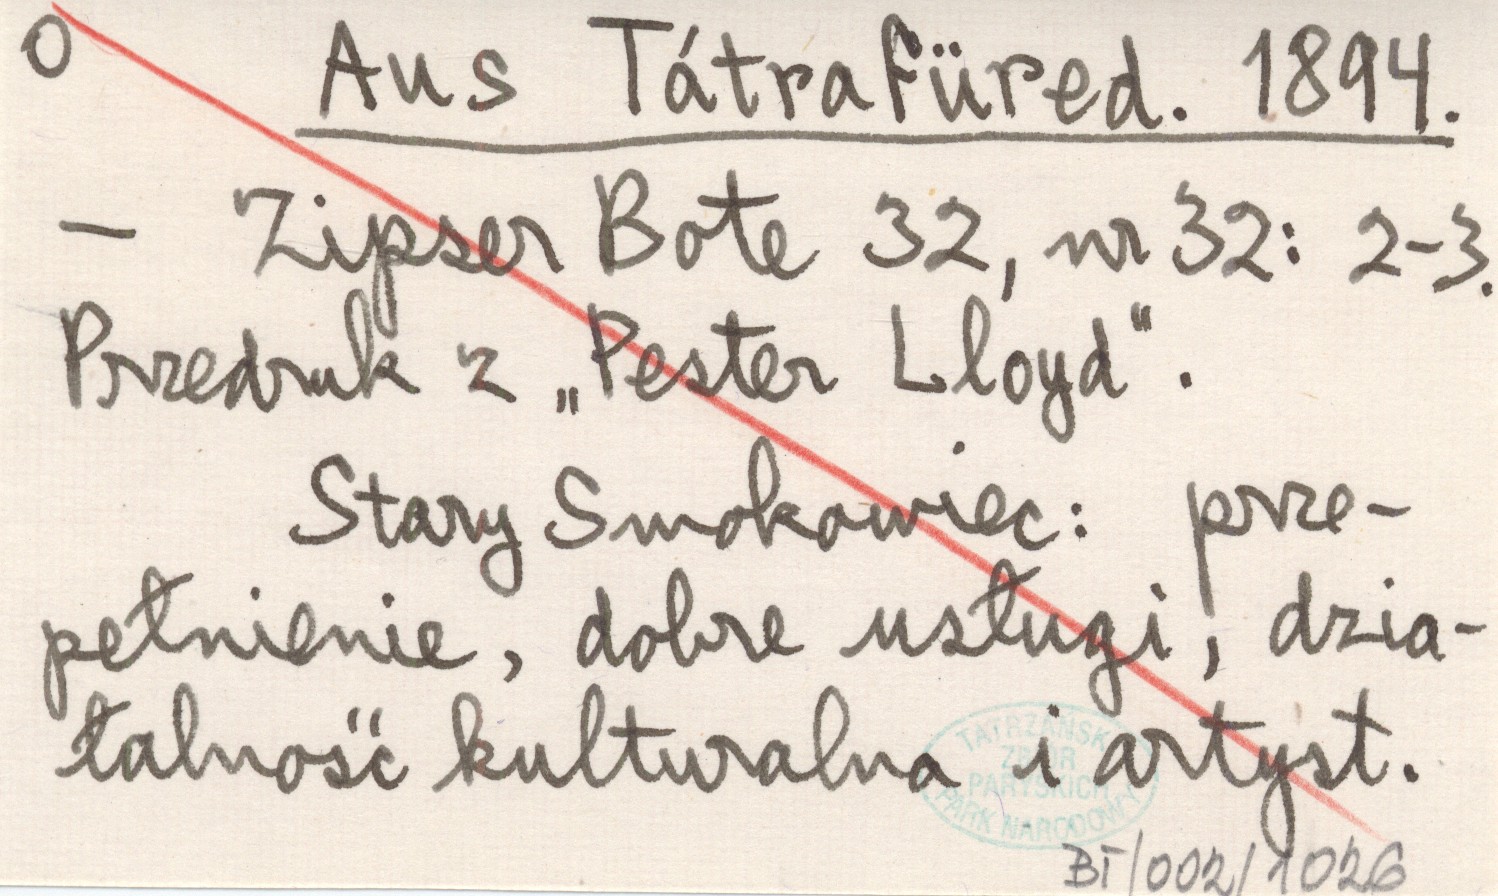 O Aus Tátrafüred. 1894.
— Zipser Bote 32, nr 32: 2-3.
Przedruk z „Pester Lloyd".
Stary Smokowiec: prze-
pełnienie, dobre usługi, dzia-
łalność kulturalna i artyst.
TATRZAŃSKI
ZBIÓR
PARYSKICH
PARK NARODOWY
BT/002/1026